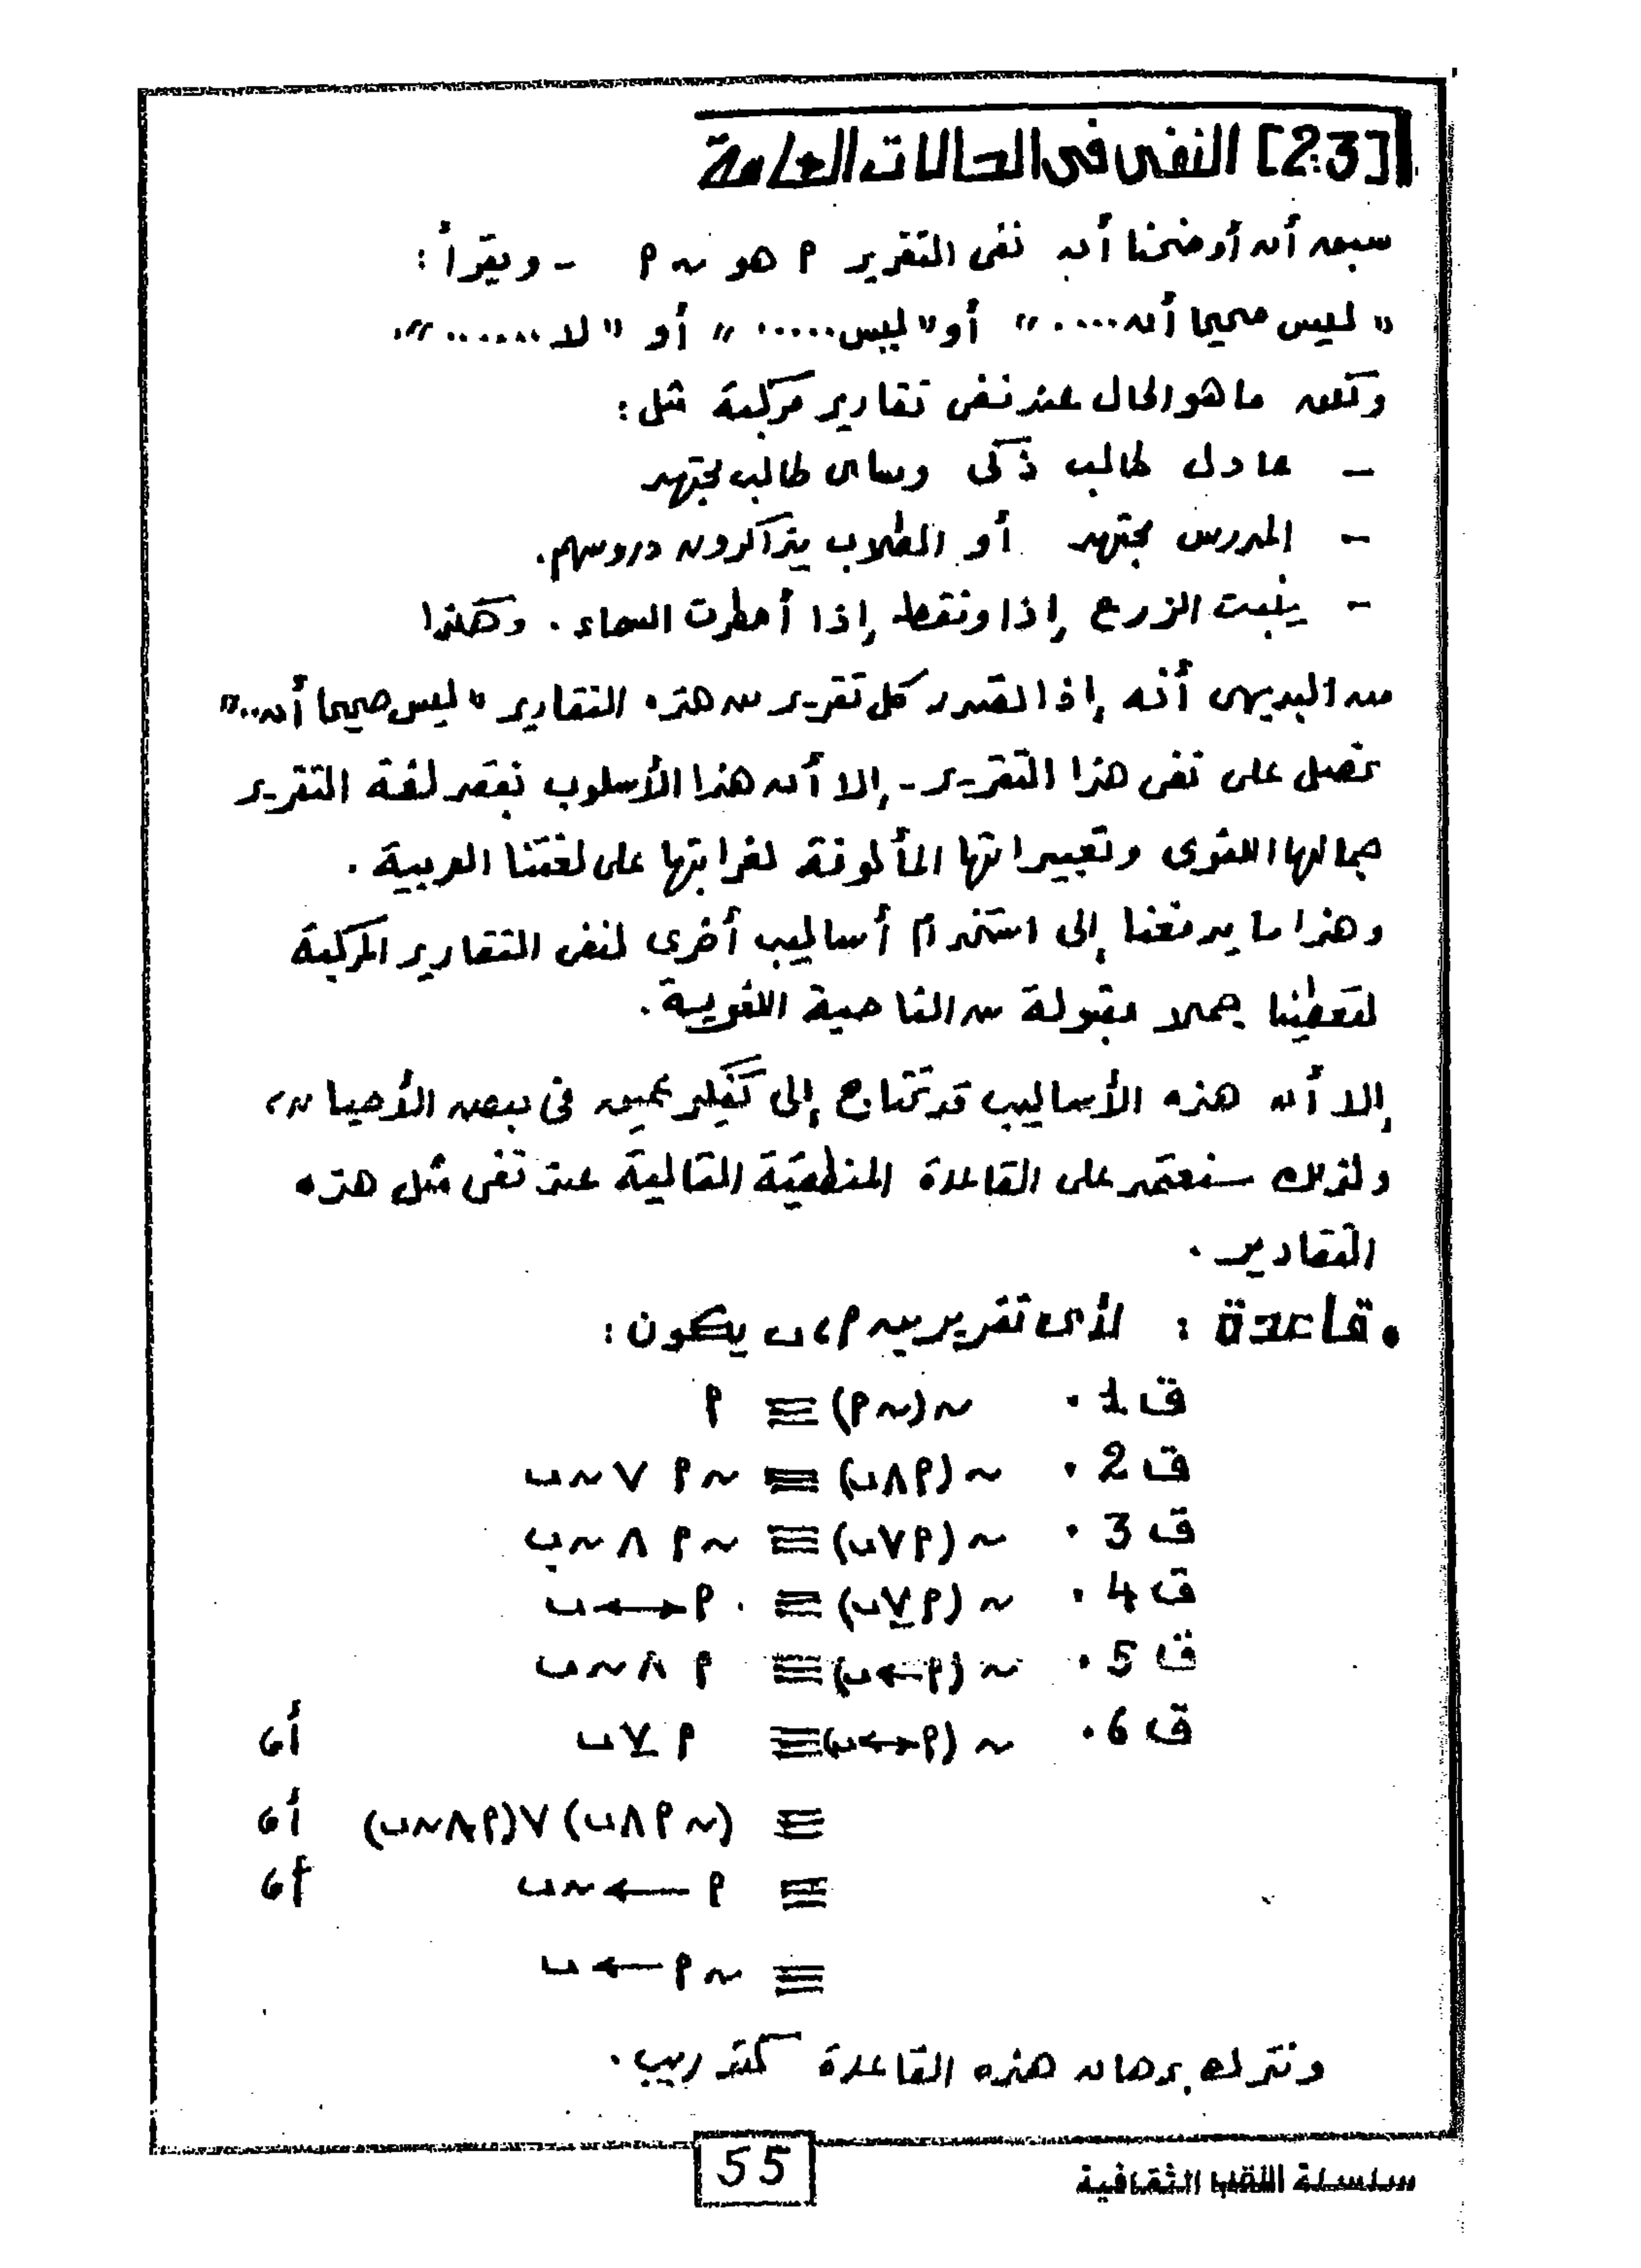 [2.3] النفى فى الحالات العامة
سبق أن أوضحنا أن نفى التقرير م هو ~ م - ويقرأ :
" ليس صحيحا أن .... " أو " ليس ..... " أو " لا ...... " .
ولكن ما هو الحال عند نفى تقارير مركبة مثل :
- عادل طالب ذكى وسامى طالب مجتهد
- المدرس مجتهد أو الطلاب يذاكرون دروسهم .
- ينبت الزرع إذا وفقط إذا أمطرت السماء . وهكذا
من البديهى أنه إذا تصدر كل تقرير من هذه التقارير " ليس صحيحا أن .. "
نحصل على نفى هذا التقرير - إلا أن هذا الأسلوب يفقد لغة التقرير
جمالها اللغوى وتعبيراتها المألوفة لغرابتها على لغتنا العربية .
وهذا ما يدفعنا إلى استخدام أساليب أخرى لنفى التقارير المركبة
لتعطينا جملا مقبولة من الناحية اللغوية .
إلا أن هذه الأساليب قد تحتاج إلى تفكير عميق فى بعض الأحيان ،
ولذلك سنعتمد على القاعدة المنطقية التالية عند نفى مثل هذه
التقارير .
• قاعدة : لأى تقريرين م ، ب يكون :
ق 1 . ~ (~ م) ≡ م
ق 2 . ~ (م ∧ ب) ≡ ~ م ∨ ~ ب
ق 3 . ~ (م ∨ ب) ≡ ~ م ∧ ~ ب
ق 4 . ~ (م ⊻ ب) ≡ م ↔ ب
ق 5 . ~ (م ← ب) ≡ م ∧ ~ ب
ق 6 . ~ (م ↔ ب) ≡ م ⊻ ب أى
≡ (~ م ∧ ب) ∨ (م ∧ ~ ب) أى
≡ م ← ~ ب أى
≡ ~ م ← ب
ونترك برهان هذه القاعدة كتدريب .
55
سلسلة اللقيا الثقافية